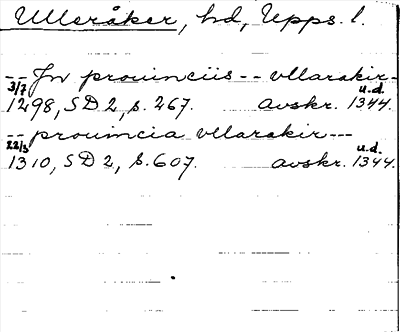 Ulleråker, hd, Upps. l.
-- Jn prouinciis -- vllarakir -
3/7 u.d.
1298, SD 2, s. 267. avskr. 1344.
-- prouincia vllarakir ---
22/3 u.d.
1310, SD 2, s. 607. avskr. 1344.